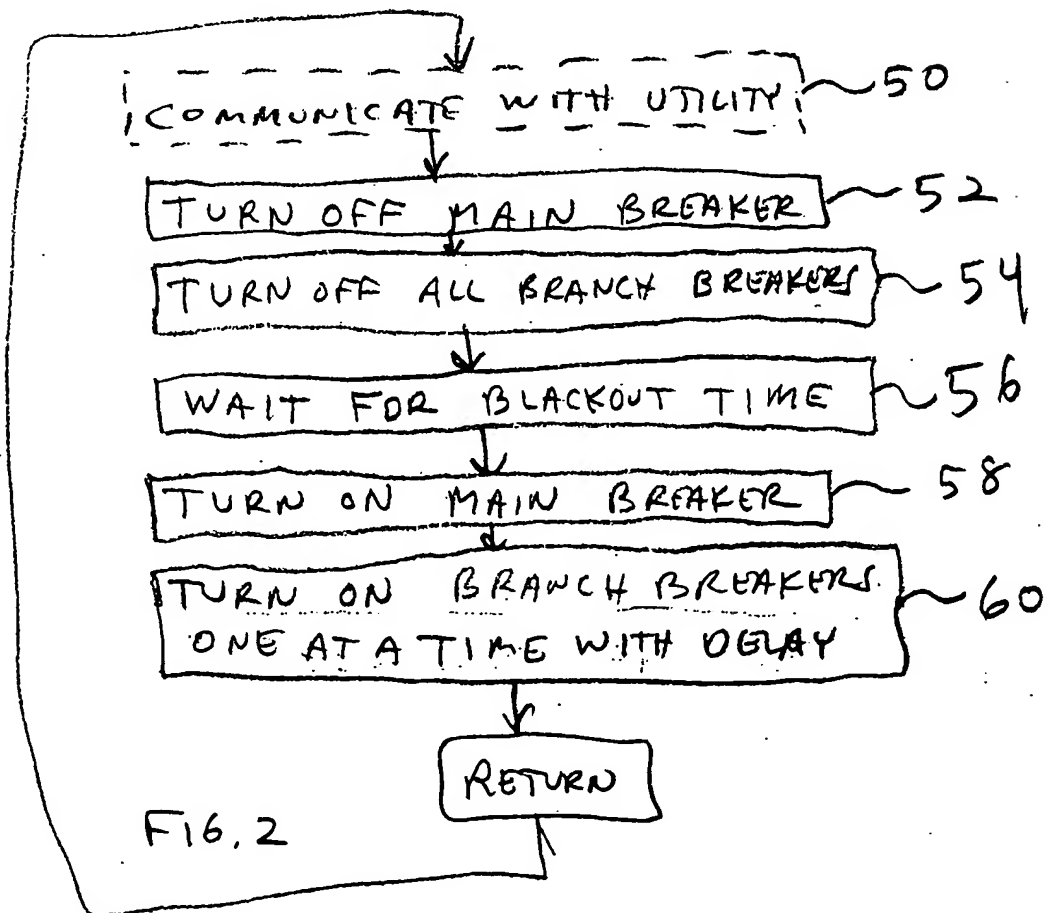 COMMUNICATE WITH UTILITY 50
TURN OFF MAIN BREAKER 52
TURN OFF ALL BRANCH BREAKERS 54
WAIT FOR BLACKOUT TIME 56
TURN ON MAIN BREAKER 58
TURN ON BRANCH BREAKERS 60
ONE AT A TIME WITH DELAY
RETURN
FIG. 2